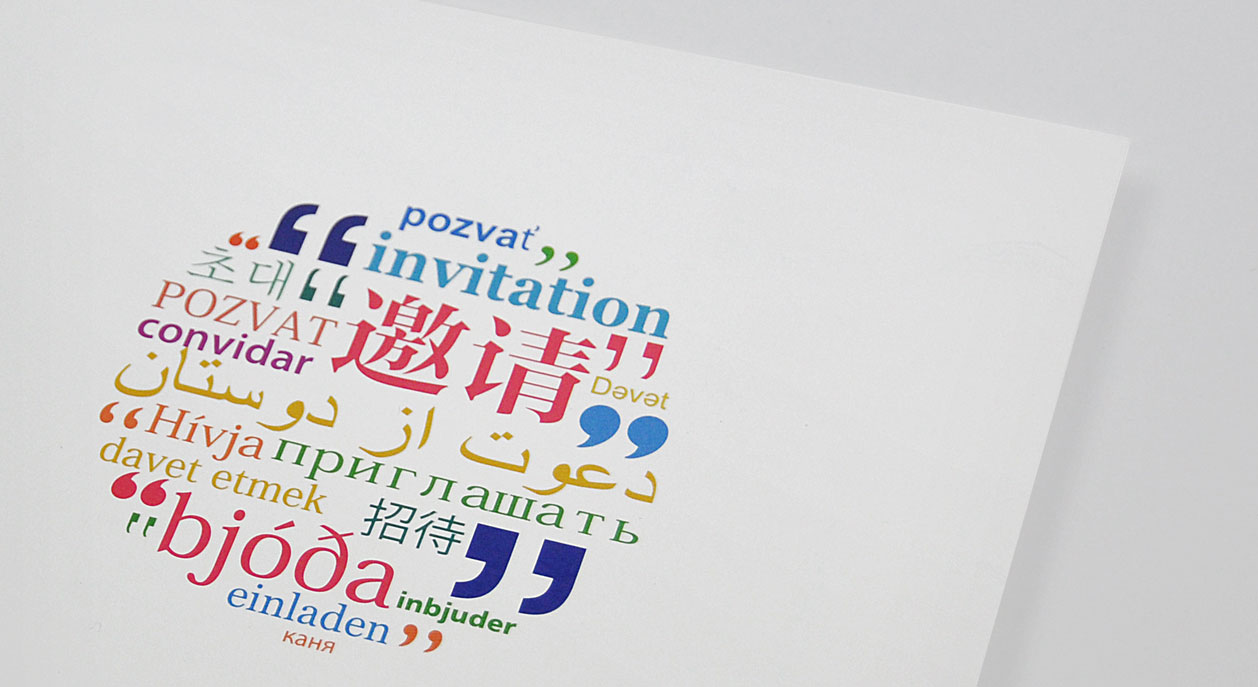 pozvať
invitation
초대
POZVAT
邀请
convidar
Dəvət
دعوت از دوستان
Hívja
приглашать
davet etmek
招待
bjóða
inbjuder
einladen
каня